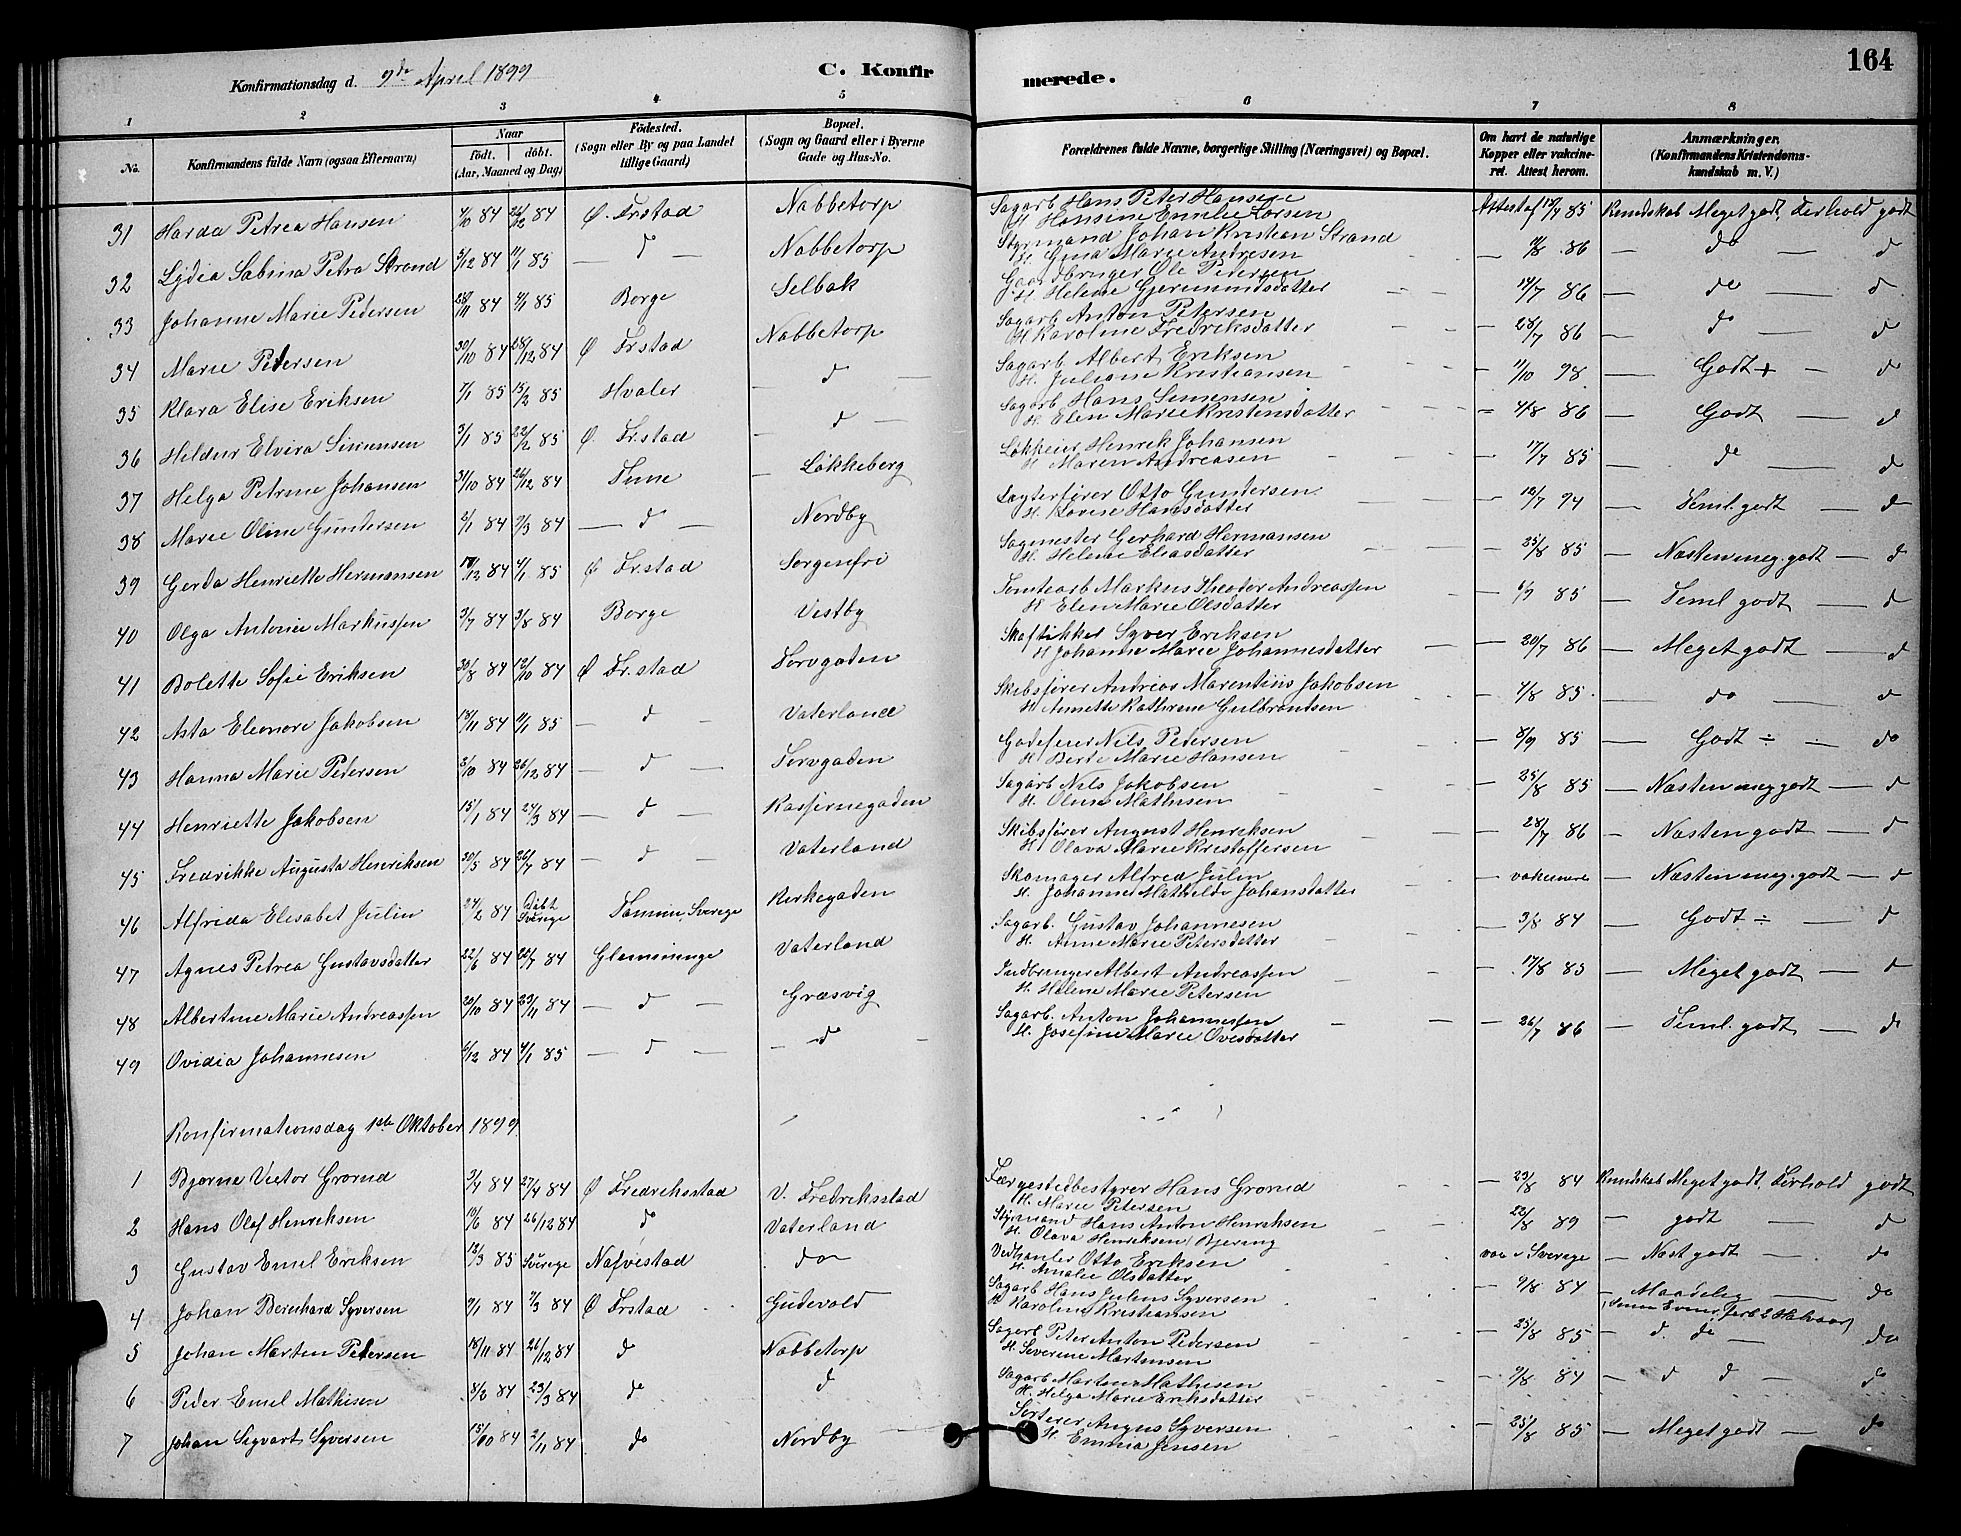 164
Konfirmationsdag d. 9de April 1899
C. Konfirmerede.
1 2 3 4 5 6 7 8
No. Konfirmandens fulde Navn (ogsaa Efternavn) Naar født. døbt. (Aar, Maaned og Dag) Fødested. (Sogn eller By og paa Landet tillige Gaard) Bopæl. (Sogn og Gaard eller i Byerne Gade og Hus-No. Forældrenes fulde Navne, borgerlige Stilling (Næringsvei) og Bopæl. Om havt de naturlige Kopper eller vakcineret. Attest herom. Anmærkninger. (Konfirmandens Kristendomskundskab m. V.)
31 Harda Petrea Hansen 4/10 84 26/12 84 Ø. Frstad Nabbetorp Sagarb Hans Peter Hansen
H. Hansine Emilie Larsen Attest af 15/7 85 Kundskab Meget godt, Forhold godt
32 Lydia Sabina Petra Strand 5/12 84 11/1 85 — d — Nabbetorp Styrmand Johan Kristian Strand
H. Gina Marie Andresen — 86 — do — d
33 Johanne Marie Pedersen 28/11 84 4/1 85 Borge Selbak Gaardbruger Ole Pedersen
H. Helene Gjermundsdatter — 14/7 86 — do — d
34 Marie Petersen 30/10 84 28/12 84 Ø Frstad Nabbetorp Sagarb Anton Petersen
H Karoline Fredriksdatter — 28/7 86 — do — d
35 Klara Elise Eriksen 7/1 85 15/2 85 Hvaler — d — Sagarb Albert Eriksen
H. Juliane Kristiansen — 11/10 98 — Godt + — d
36 Heldur Elvira Simensen 3/1 85 22/2 85 Ø. Fr.stad — d — Sagarb Hans Simensen
H. Elen Marie Kristensdatter — 4/8 86 — Godt — d
37 Helga Petrine Johansen 31/10 84 26/12 84 Tune — Løkkeberg Løkkeier Henrik Johansen
H Maren Andreasen — 17/7 85 — do — d
38 Marie Oline Gundersen 2/1 84 9/3 84 — d — Nordby Lægterfører Otto Gundersen
H. Lovise Hansdatter — 12/7 94 — Teml. godt — d
39 Gerda Henriette Hermansen 17/12 84 4/1 85 Ø Fr.stad Sorgenfri Sagmester Gerhard Hermansen
H. Helene Eliasdatter — 25/8 85 — Næsten meg. godt — d
40 Olga Antonie Markussen 3/7 84 3/8 84 Borge Vestby Tomtearb Markus Theodor Andreassen
H Elen Marie Olsdatter — 6/7 85 — Teml godt — d
41 Bolette Sofie Eriksen 30/8 84 12/10 84 Ø Fr.stad Torvgaden Syver Eriksen
H Johanne Marie Johannesdatter — 20/7 86 — Meget godt — d
42 Asta Eleonore Jakobsen 18/11 84 11/1 85 — d — Vaterland Skibsfører Andreas Marentius Jakobsen
H. Annette Kathrine Gulbrandsen — 4/8 85 — do — d
43 Hanna Marie Pedersen 3/10 84 26/12 84 — d — Torvgaden Nils Pedersen
H Berte Marie Hansen — 8/9 85 — Godt ÷ — do
44 Henriette Jakobsen 15/1 84 24/3 84 — d — Kasernegaden Sagarb Nils Jakobsen
H. Oluse Mathisen — 25/8 85 — Næsten meg godt — d
45 Fredrikke Augusta Henriksen 30/5 84 26/7 84 — d — Vaterland Skibsfører August Henriksen
H. Olava Marie Kristoffersen — 28/7 86 — Næsten godt — d
46 Alfrida Elisabet Julin 24/2 84 Døbt Sverige Tanum, Sverige Kirkegaden Skomager Alfred Julin
H. Johanne Mathilde Johansdatter — vakcinere — Næsten meg. godt — d
47 Agnes Petrea Gustavsdatter 22/6 84 22/7 84 Glemminge Vaterland Sagarb. Gustav Johannesen
H. Anne Marie Petersdatter — 3/8 84 — Godt ÷ — d
48 Albertine Marie Andreassen 20/10 84 23/11 84 — d — Græsvig Indbringer Albert Andreassen
H. Helene Marie Petersen — 17/8 85 — Meget godt — d
49 Ovidia Johannesen 6/12 84 4/1 85 — d — — d — Sagarb. Anton Johannessen
H. Josefine Marie Ovesdatter — 26/7 86 — Teml. godt — d
Konfirmationsdag 1ste Oktober 1899
1 Bjarne Victor Grorud 3/4 84 27/4 84 Ø Fredriksstad V. Fredriksstad Færgestedbestyrer Hans Grorud
H. Marie Petersen — 23/8 84 Kundskab Meget godt, Forhold godt
2 Hans Olaf Henriksen 10/6 84 26/12 84 do Vaterland Styrmand Hans Anton Henriksen
H. Olava Henriksen Bjering — 22/8 89 — godt — d
3 Gustav Emil Eriksen 12/3 85 Sverige Nafvestad do Vedhanler Otto Eriksen
H. Amalie Olsdatter vac i Sverige — Næst godt — do
4 Johan Bernhard Syversen 9/1 84 9/3 84 Ø Frstad Gudevold Sagarb Hans Julius Syversen
H Karoline Kristiansen — 9/8 84 — Maadelig — do
5 Johan Marten Petersen 18/11 84 26/12 84 d Nabbetorp Sagarb Peter Anton Pedersen
H Severine Martensen — 25/8 85 — d. do — do
6 Peder Emil Mathisen 8/2 84 23/3 84 do d Sagarb Martin Mathisen
H. Helga Marie Eriksdatter — 9/8 84 — d d — do
7 Johan Sigvart Syversen 15/10 84 2/11 84 do Nordby Sorterer August Syversen
H. Emmia Jensen — 25/8 85 — Meget godt — do